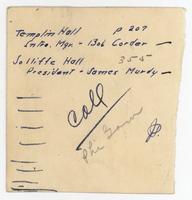 Templin Hall P 207
Intro. Mgr. - Bob Corder -
Jolliffe Hall 355
President - James Murdy -
Call
Phi Gam